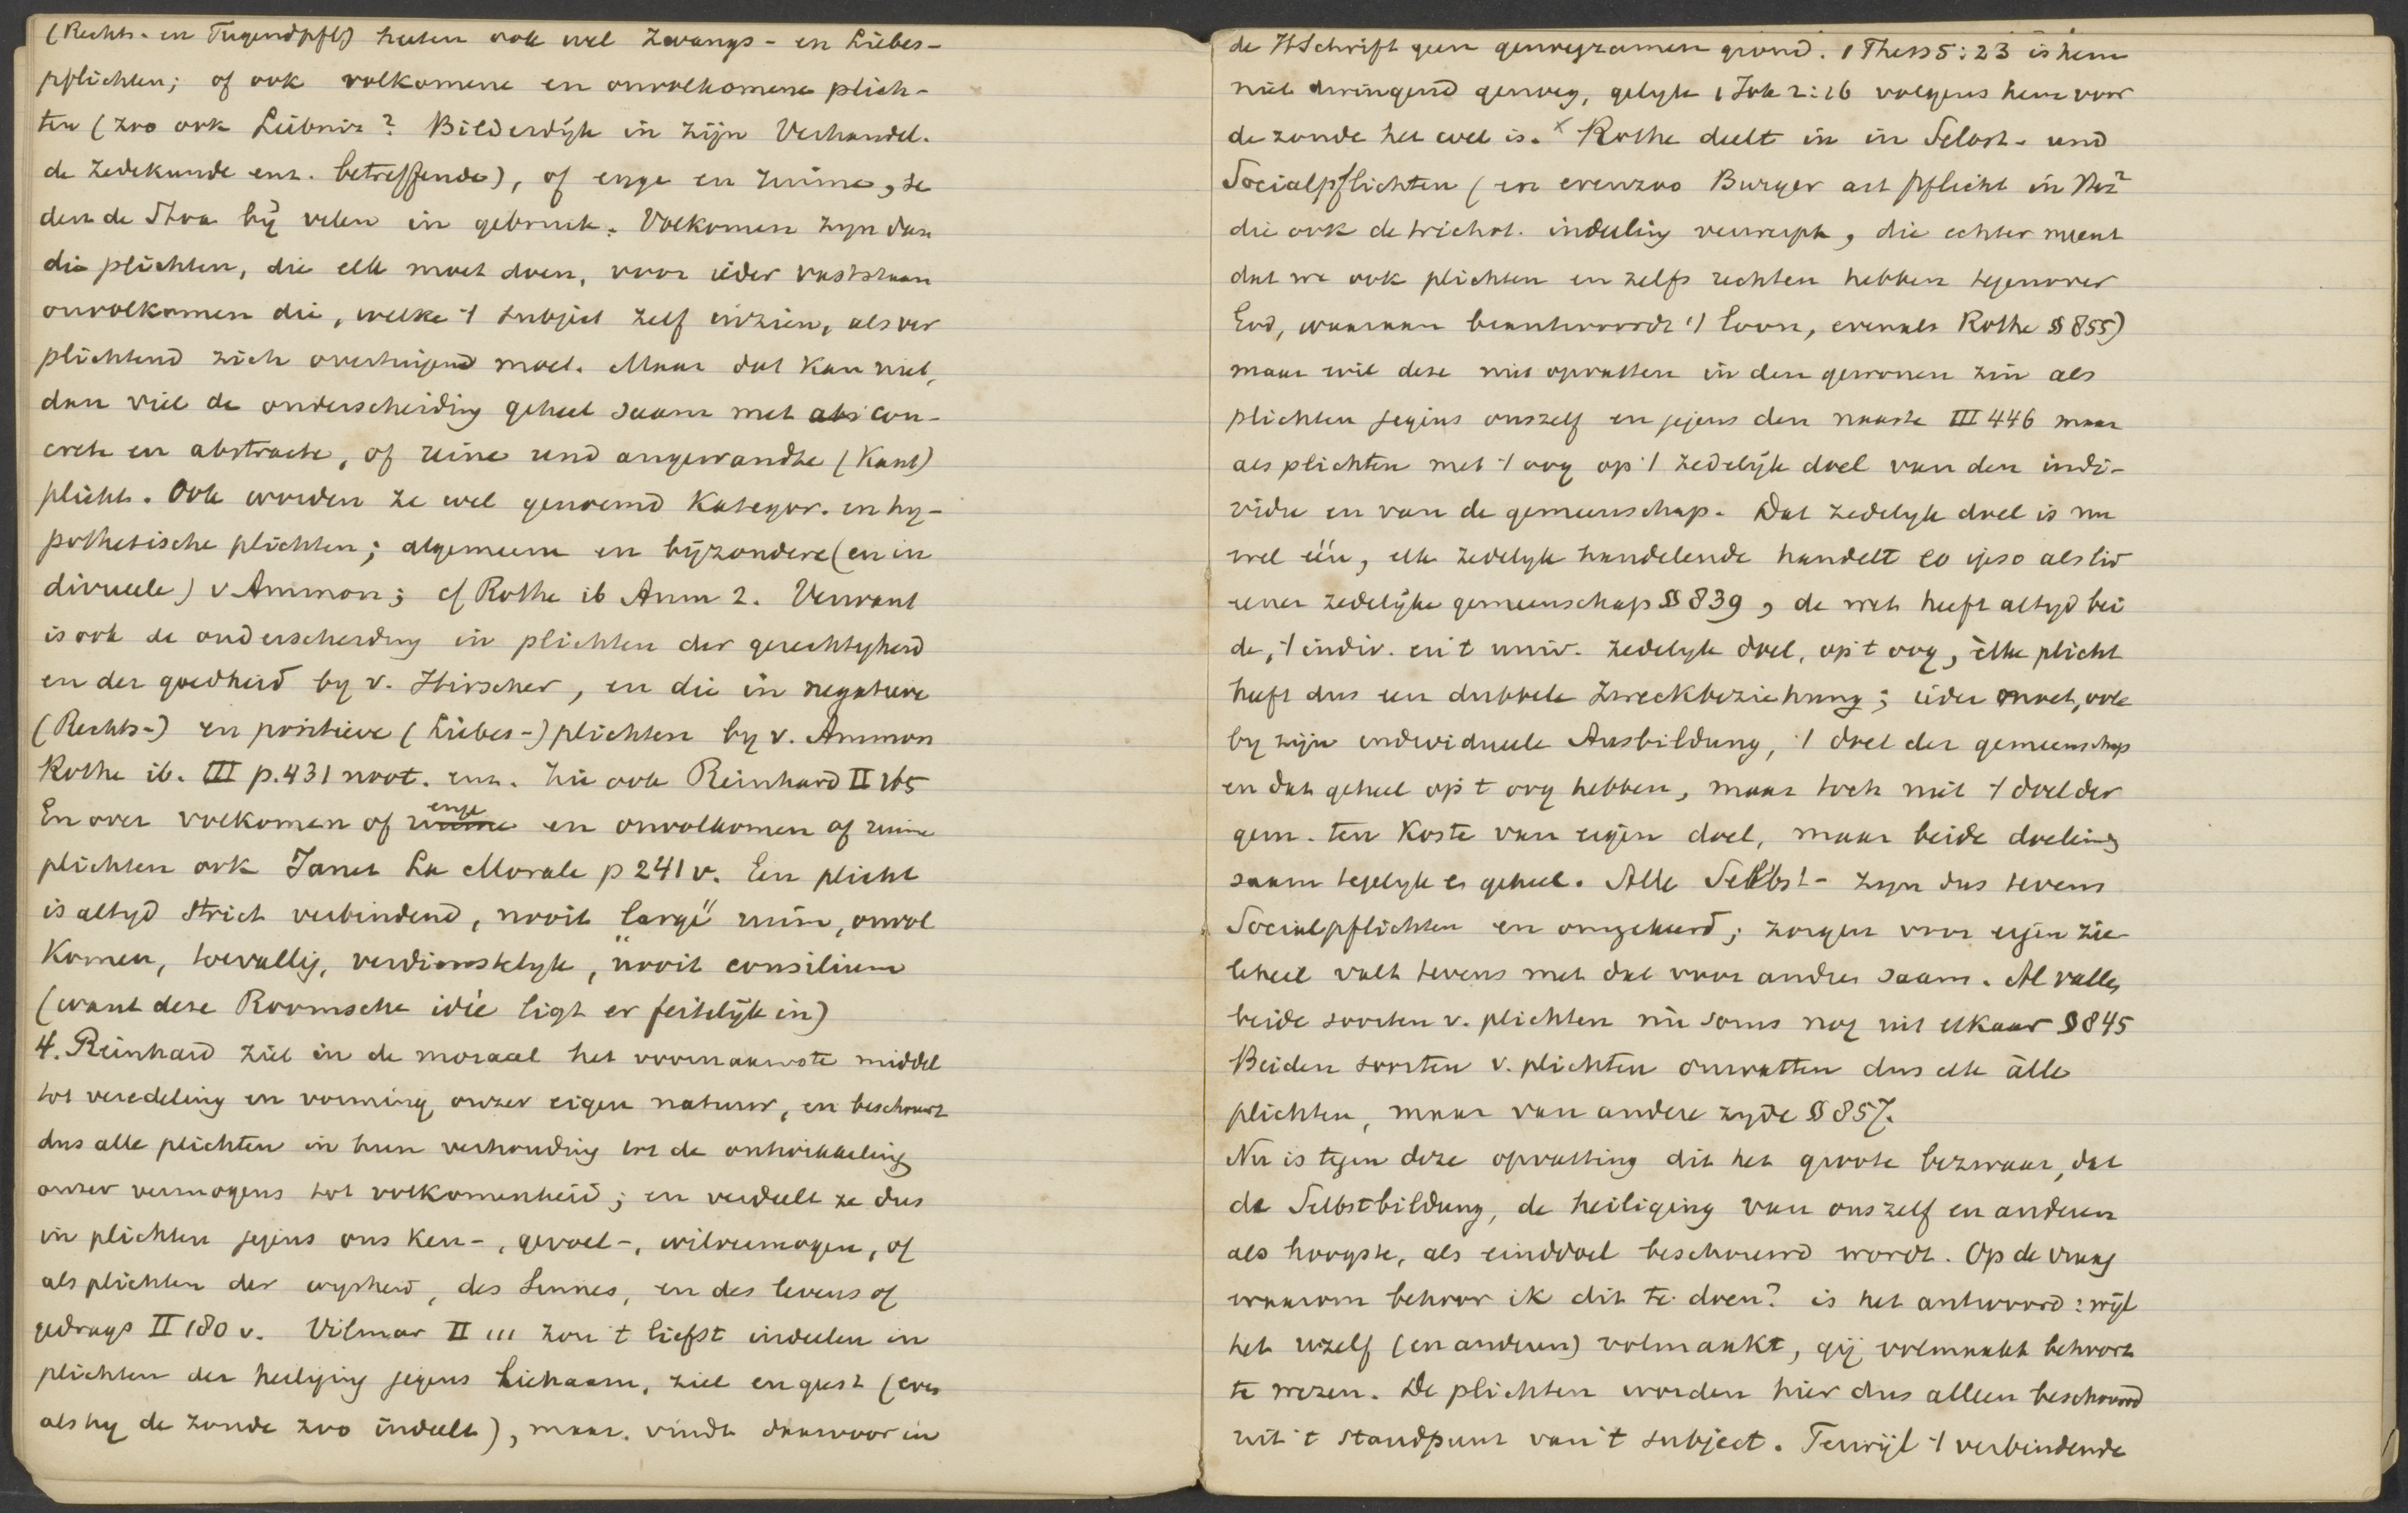 (Rechts- en Tugendpfl) heeten ook wel Zwangs- en Liebes-
pflichten; of ook volkomene en onvolkomene plich-
ten (zoo ook Leibniz? Bilderdijk in zijn Verhandel.
de zedekunde enz. betreffende), of enge en ruime, se
dert de Stoa bij velen in gebruik. Volkomen zyn dan
die plichten, die elk moet doen, voor ieder vaststaan
onvolkomen die, welke 't subject zelf inzien, als ver
plichtend zich overtuigend moet. Maar dat kan niet,
dan viel de onderscheiding geheel saam met abs con-
crete en abstracte, of reine und angewandte (Kant)
plicht. Ook worden ze wel genoemd Kategor. en hy-
pothetische plichten; algemeene en bijzondere (en in
divuele) v Ammon; cf Rothe ib Anm 2. Verwant
is ook de onderscheiding in plichten der gerechtigheid
en der goedheid by v. Hirscher, en die in negatieve
(Rechts-) en positieve (Liebes-) plichten by v. Ammon
Rothe ib. III p.431 noot. enz. Zie ook Reinhard II 165
En over volkomen of ruime enge en onvolkomen of ruime
plichten ook Janet La Morale p 241 v. Een plicht
is altyd strict verbindend, nooit "large" ruim, onvol
komen, toevallig, verdienstelyk, nooit consilium
(want deze Roomsche idée ligt er feitelijk in)
4. Reinhard ziet in de moraal het voornaamste middel
tot veredeling en vorming onzer eigen natuur, en beschouwt
dus alle plichten in hun verhouding tot de ontwikkeling
onzer vermogens tot volkomenheid; en verdeelt ze dus
in plichten jegens ons Ken-, gevoel-, wilvermogen, of
als plichten der wysheid, des Sinnes, en des levens of
gedrags II 180 v. Vilmar II 111 zou 't liefst indeelen in
plichten der heiliging jegens Lichaam, ziel en geest (even
als hy de zonde zoo indeelt), maar vindt daarvoor in
de HSchrift geen genoegzamen grond. 1 Thess 5:23 is hem
niet dwingend genoeg, gelyk 1 Joh 2:16 volgens hem voor
de zonde het wel is. x Rothe deelt in in Selbst- und
Socialpflichten (en evenzoo Burger art Pflicht in Hrz²
die ook de trichot. indeeling verwerpt, die echter meent
dat we ook plichten en zelfs rechten hebben tegenover
God, waaraan beantwoordt 't loon, evenals Rothe § 855)
maar wil deze niet opvatten in den gewonen zin als
plichten jegens onszelf en jegens den naaste III 446 maar
als plichten met 't oog op 't zedelijk doel van den indi-
vidu en van de gemeenschap. Dat zedelyk doel is nu
wel één, elk zedelyk handelende handelt eo ipso als lid
eener zedelijke gemeenschap § 839, de wet heeft altyd bei
de, 't indiv. en 't univ. zedelyk doel, op 't oog, elke plicht
heeft dus een dubbele Zweckbeziehung; ieder moet, ook
by zijn individueele Ausbildung, 't doel der gemeenschap
en dat geheel op 't oog hebben, maar toch niet 't doel der
gem. ten koste van eigen doel, maar beide doeleinden
saam tegelyk en geheel. Alle Selbst- zyn dus tevens
Socialpflichten en omgekeerd; zorgen voor eigen zie-
leheil valt tevens met dat voor andren saam. Al vallen
beide soorten v. plichten nu soms nog uit elkaar § 845
Beiden soorten v. plichten omvatten dus elk alle
plichten, maar van andere zyde § 857.
Nu is tegen deze opvatting dit het groote bezwaar, dat
de Selbstbildung, de heiliging van onszelf en anderen
als hoogste, als einddoel beschouwd wordt. Op de vraag
waarom behoor ik dit te doen? is het antwoord: wijl
het uzelf (en anderen) volmaakt, gij volmaakt behoort
te wezen. De plichten worden hier dus alleen beschouwd
uit 't standpunt van 't subject. Terwijl 't verbindende